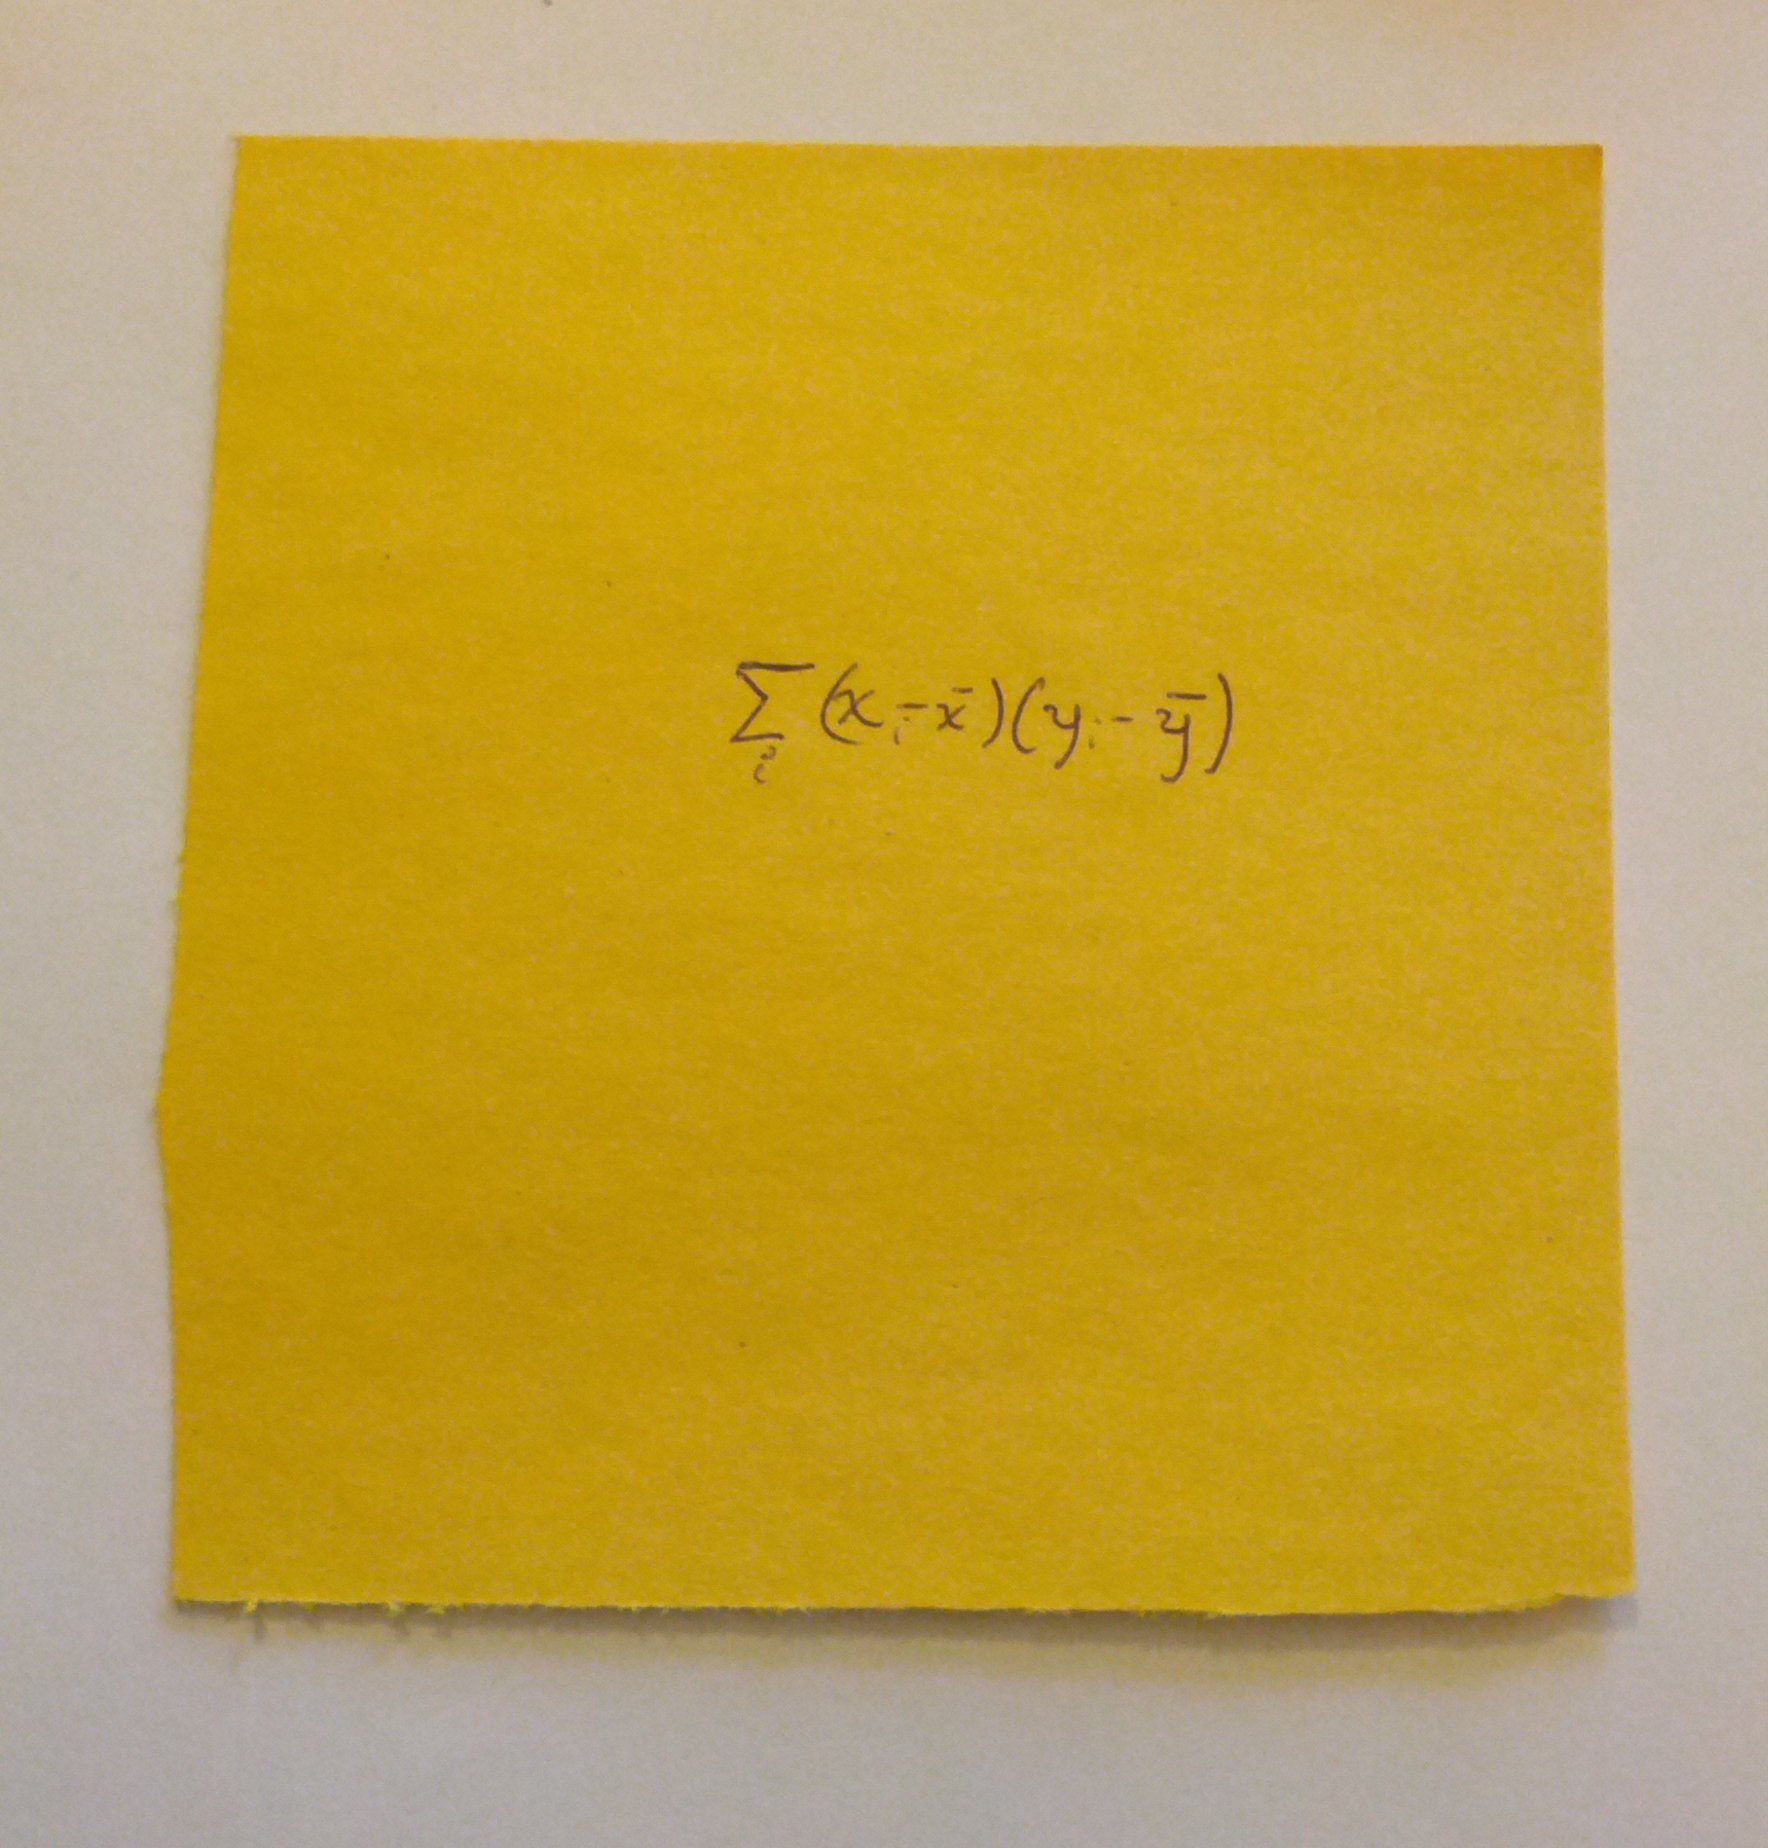 ∑_i (x_i - x̄)(y_i - ȳ)